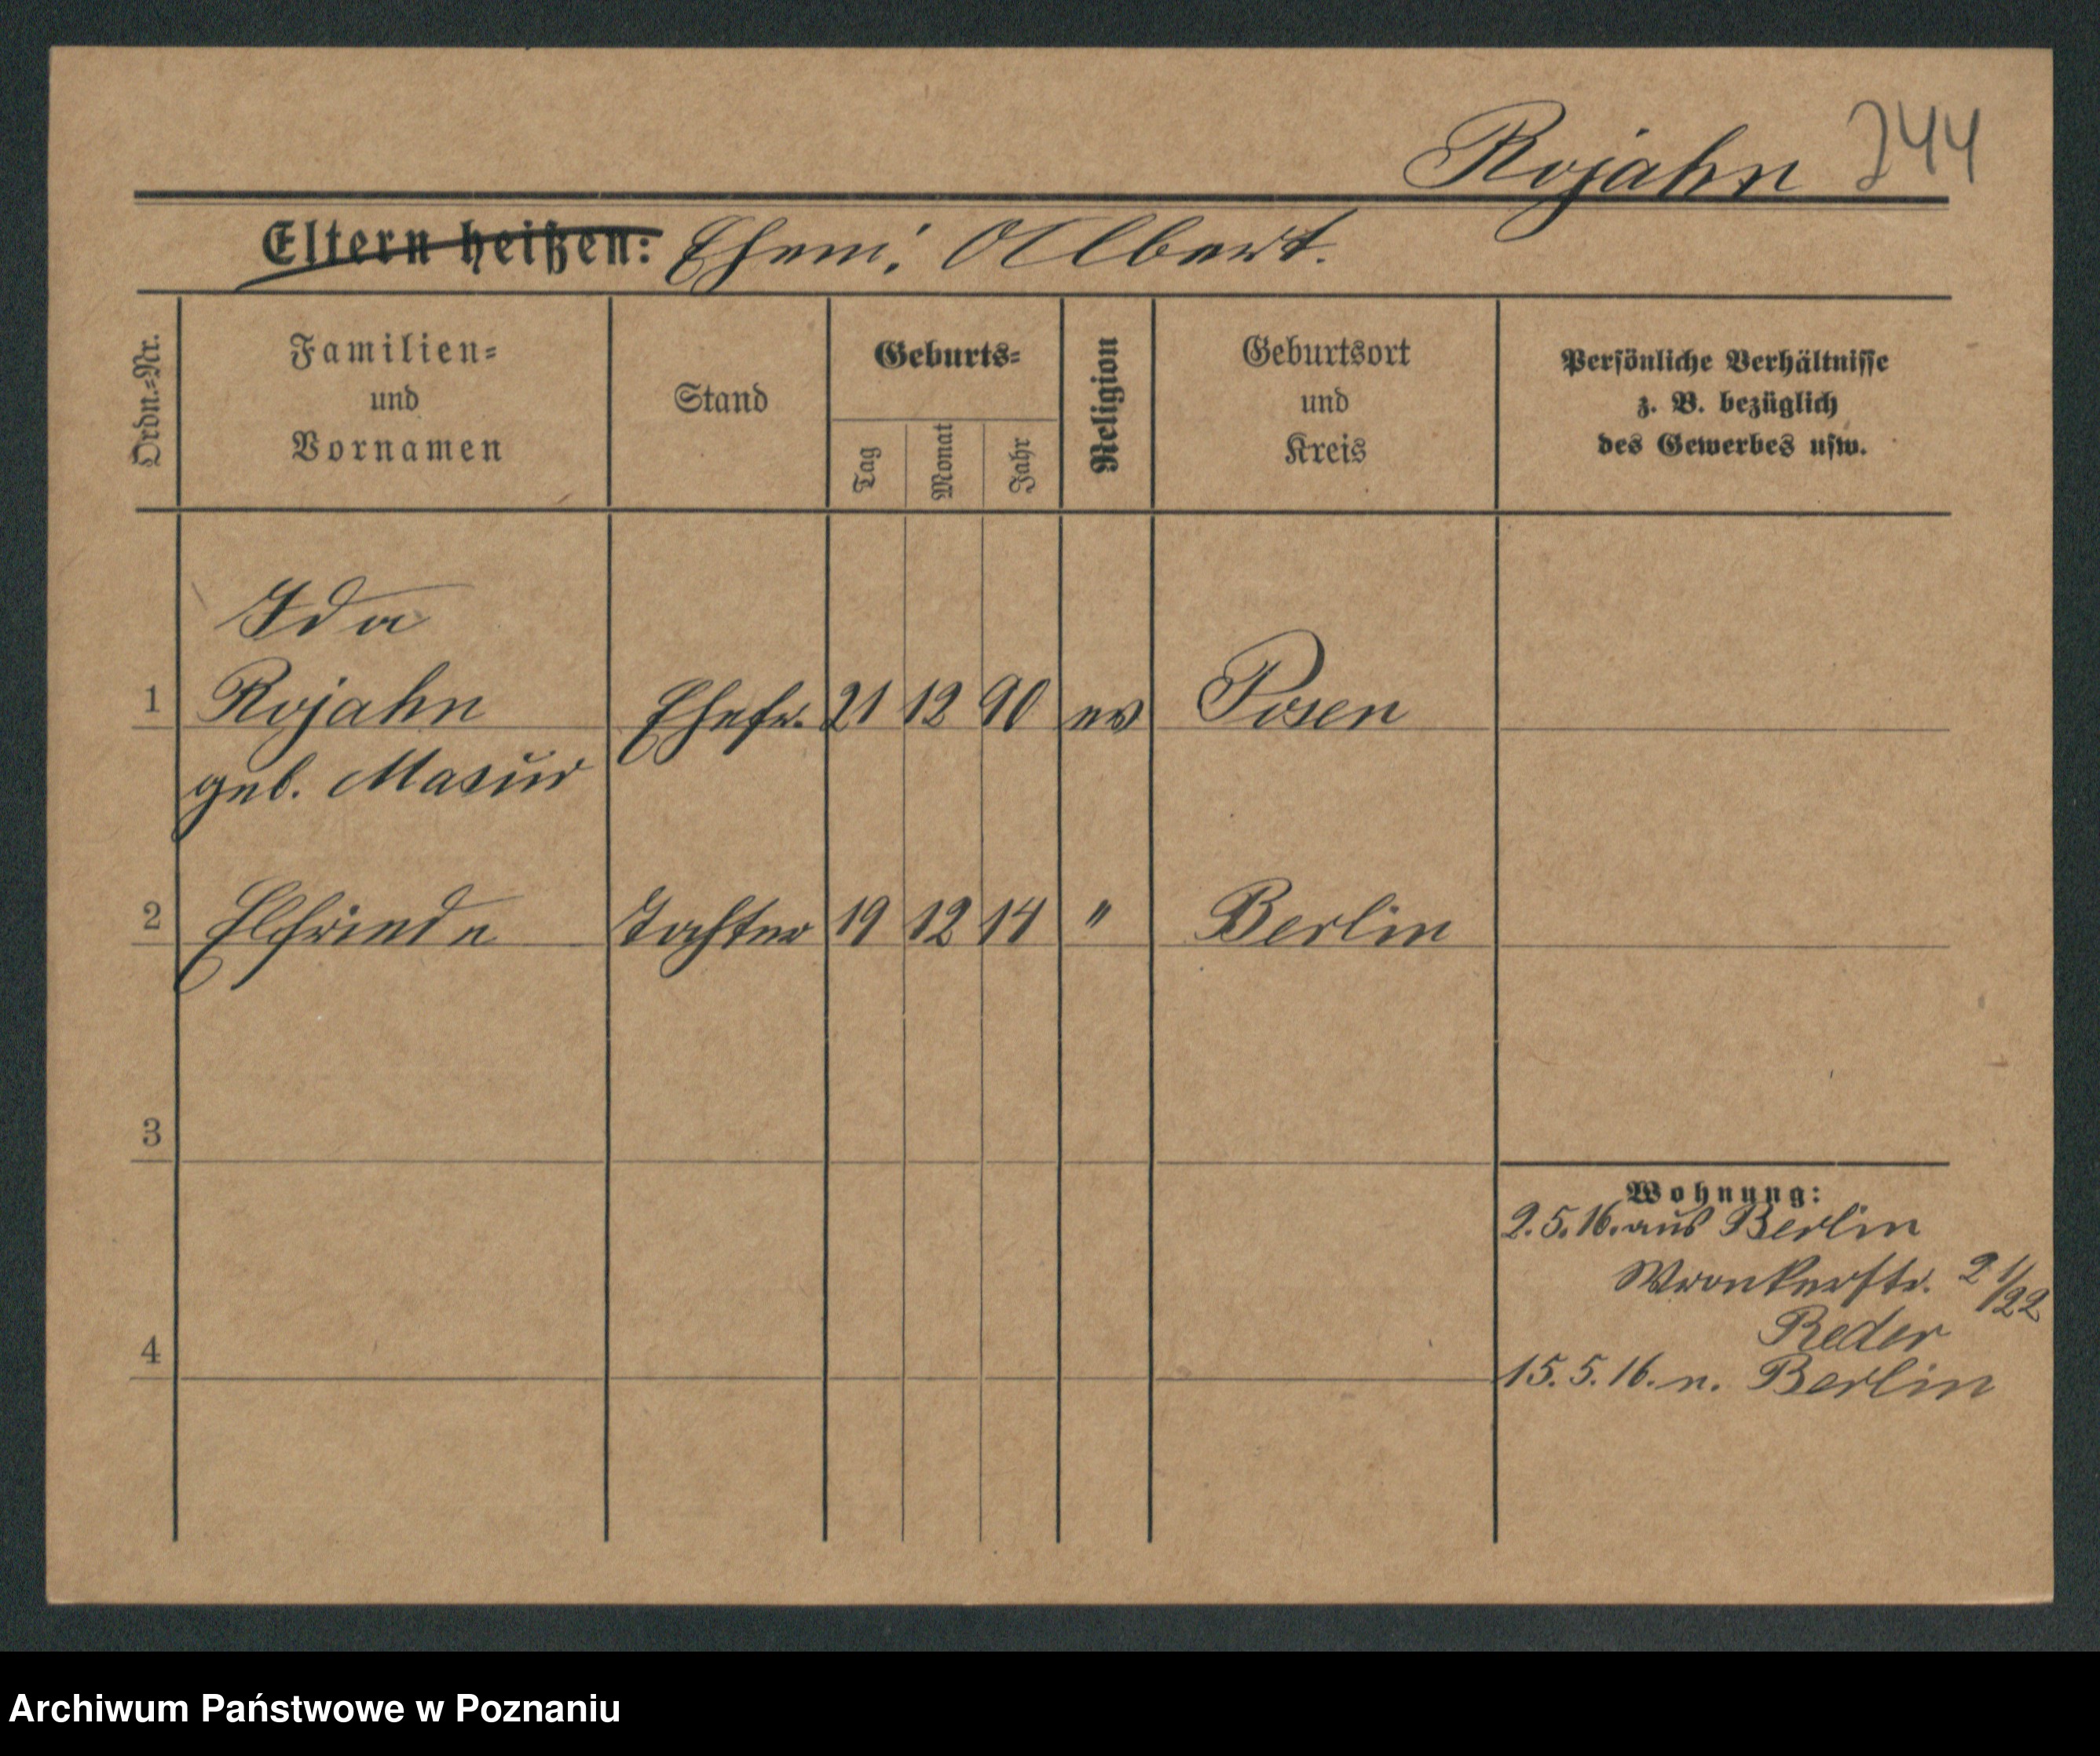 Rojahn 244
Eltern heißen: Ehem: Albert.
Ordn.-Nr.
Familien-
und
Vornamen
Stand
Geburts-
Tag
Monat
Jahr
Religion
Geburtsort
und
Kreis
Persönliche Verhältnisse
z. B. bezüglich
des Gewerbes usw.
Ida
1 Rojahn Ehefr. 21 12 90 ev Posen
geb. Masur
2 Elfriede Tochter 19 12 14 " Berlin
3
Wohnung:
2.5.16. aus Berlin
Wronkerstr. 21/22
Reder
4
15.5.16. n. Berlin
Archiwum Państwowe w Poznaniu